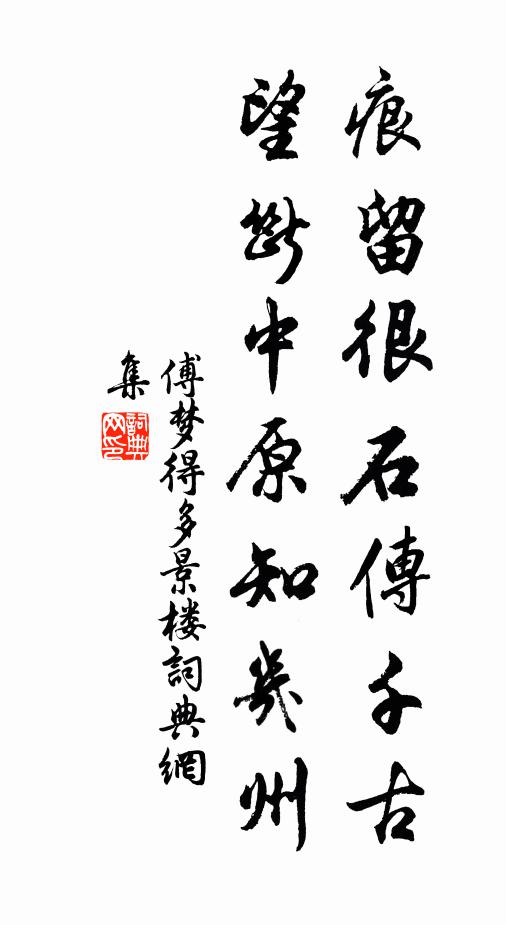 痕留很石傳千古
望斷中原知幾州
傅梦得多景楼詞典網
集
詞典
网印